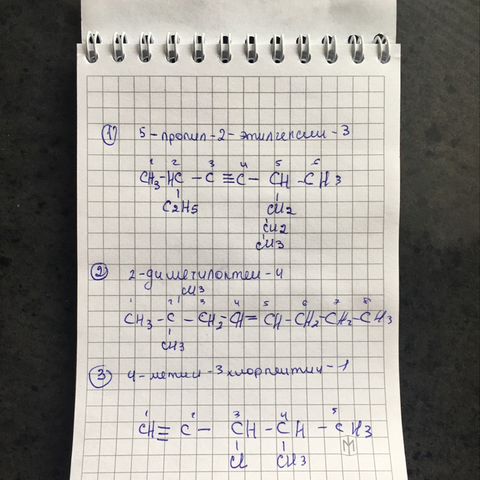 1) 5-пропил-2-этилгексин-3
1 2 3 4 5 6
CH3-HC-C≡C-CH-CH3
C2H5 CH2
CH2
CH3
2) 2-диметилоктен-4
CH3
1 2 3 4 5 6 7 8
CH3-C-CH2-CH=CH-CH2-CH2-CH3
CH3
3) 4-метил-3хлорпентин-1
1 2 3 4 5
CH≡C-CH-CH-CH3
Cl CH3